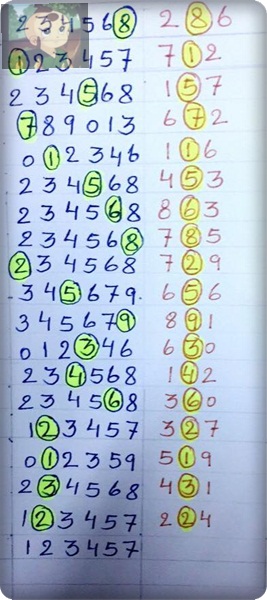 2 3 4 5 6 8 2 8 6
1 2 3 4 5 7 7 1 2
2 3 4 5 6 8 1 5 7
7 8 9 0 1 3 6 7 2
0 1 2 3 4 6 1 1 6
2 3 4 5 6 8 4 5 3
2 3 4 5 6 8 8 6 3
2 3 4 5 6 8 7 8 5
2 3 4 5 6 8 7 2 9
3 4 5 6 7 9 6 5 6
3 4 5 6 7 9 8 9 1
0 1 2 3 4 6 6 3 0
2 3 4 5 6 8 1 4 2
2 3 4 5 6 8 3 6 0
1 2 3 4 5 7 3 2 7
0 1 2 3 5 9 5 1 9
2 3 4 5 6 8 4 3 1
1 2 3 4 5 7 2 2 4
1 2 3 4 5 7